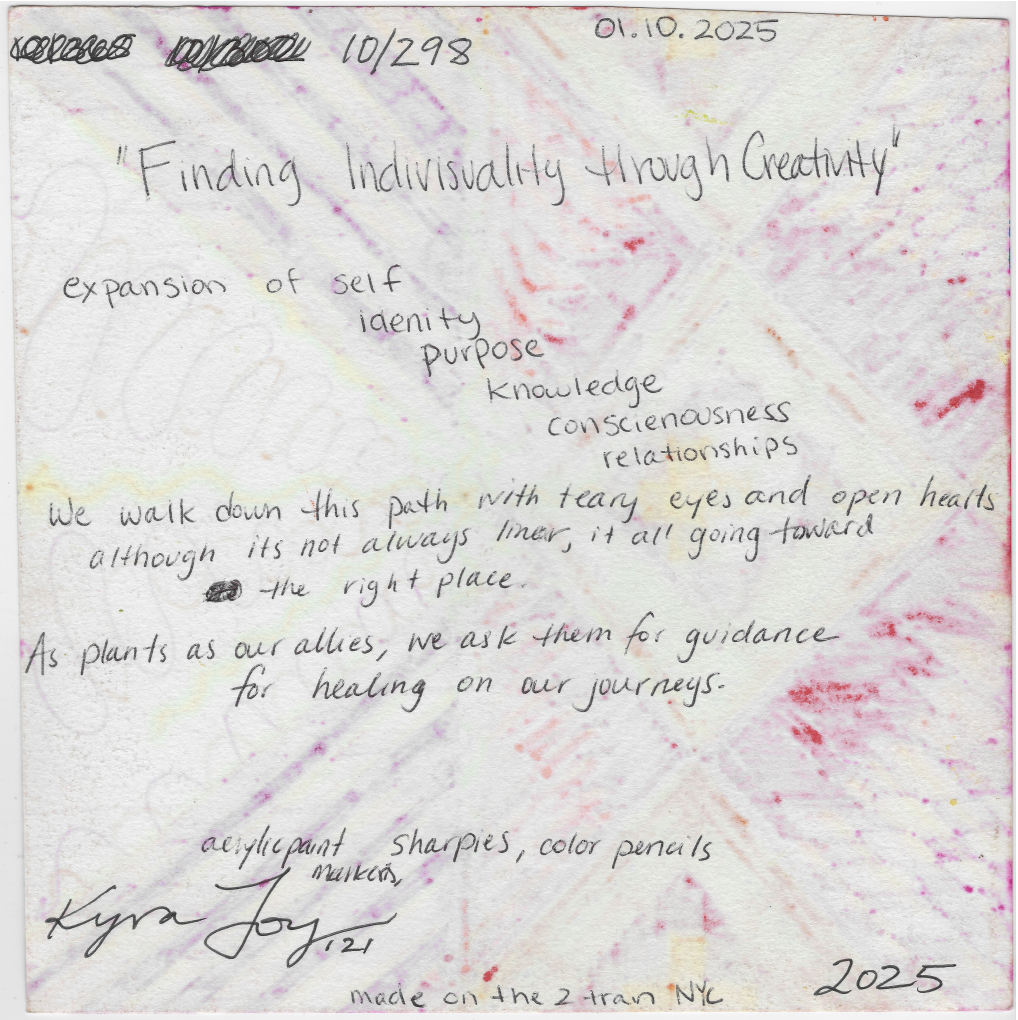 10/298
01.10.2025
"Finding Indivisuality through Creativity"
expansion of self
idenity
purpose
knowledge
conscienousness
relationships
We walk down this path with teary eyes and open hearts
although its not always liner, it all going toward
the right place.
As plants as our allies, we ask them for guidance
for healing on our journeys.
acrylic paint sharpies, color pencils
markers,
Kyra Joy '21
2025
made on the 2 train NYC